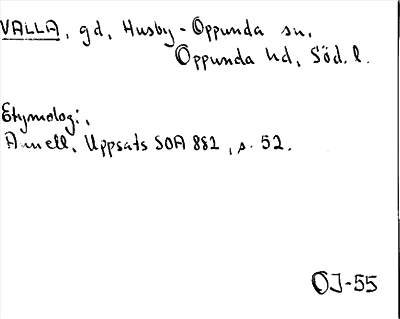 VALLA, gd, Husby-Oppunda sn,
Oppunda hd, Söd. l.
Etymolog:,
Arnell, Uppsats SOA 882, s. 52.
OJ-55